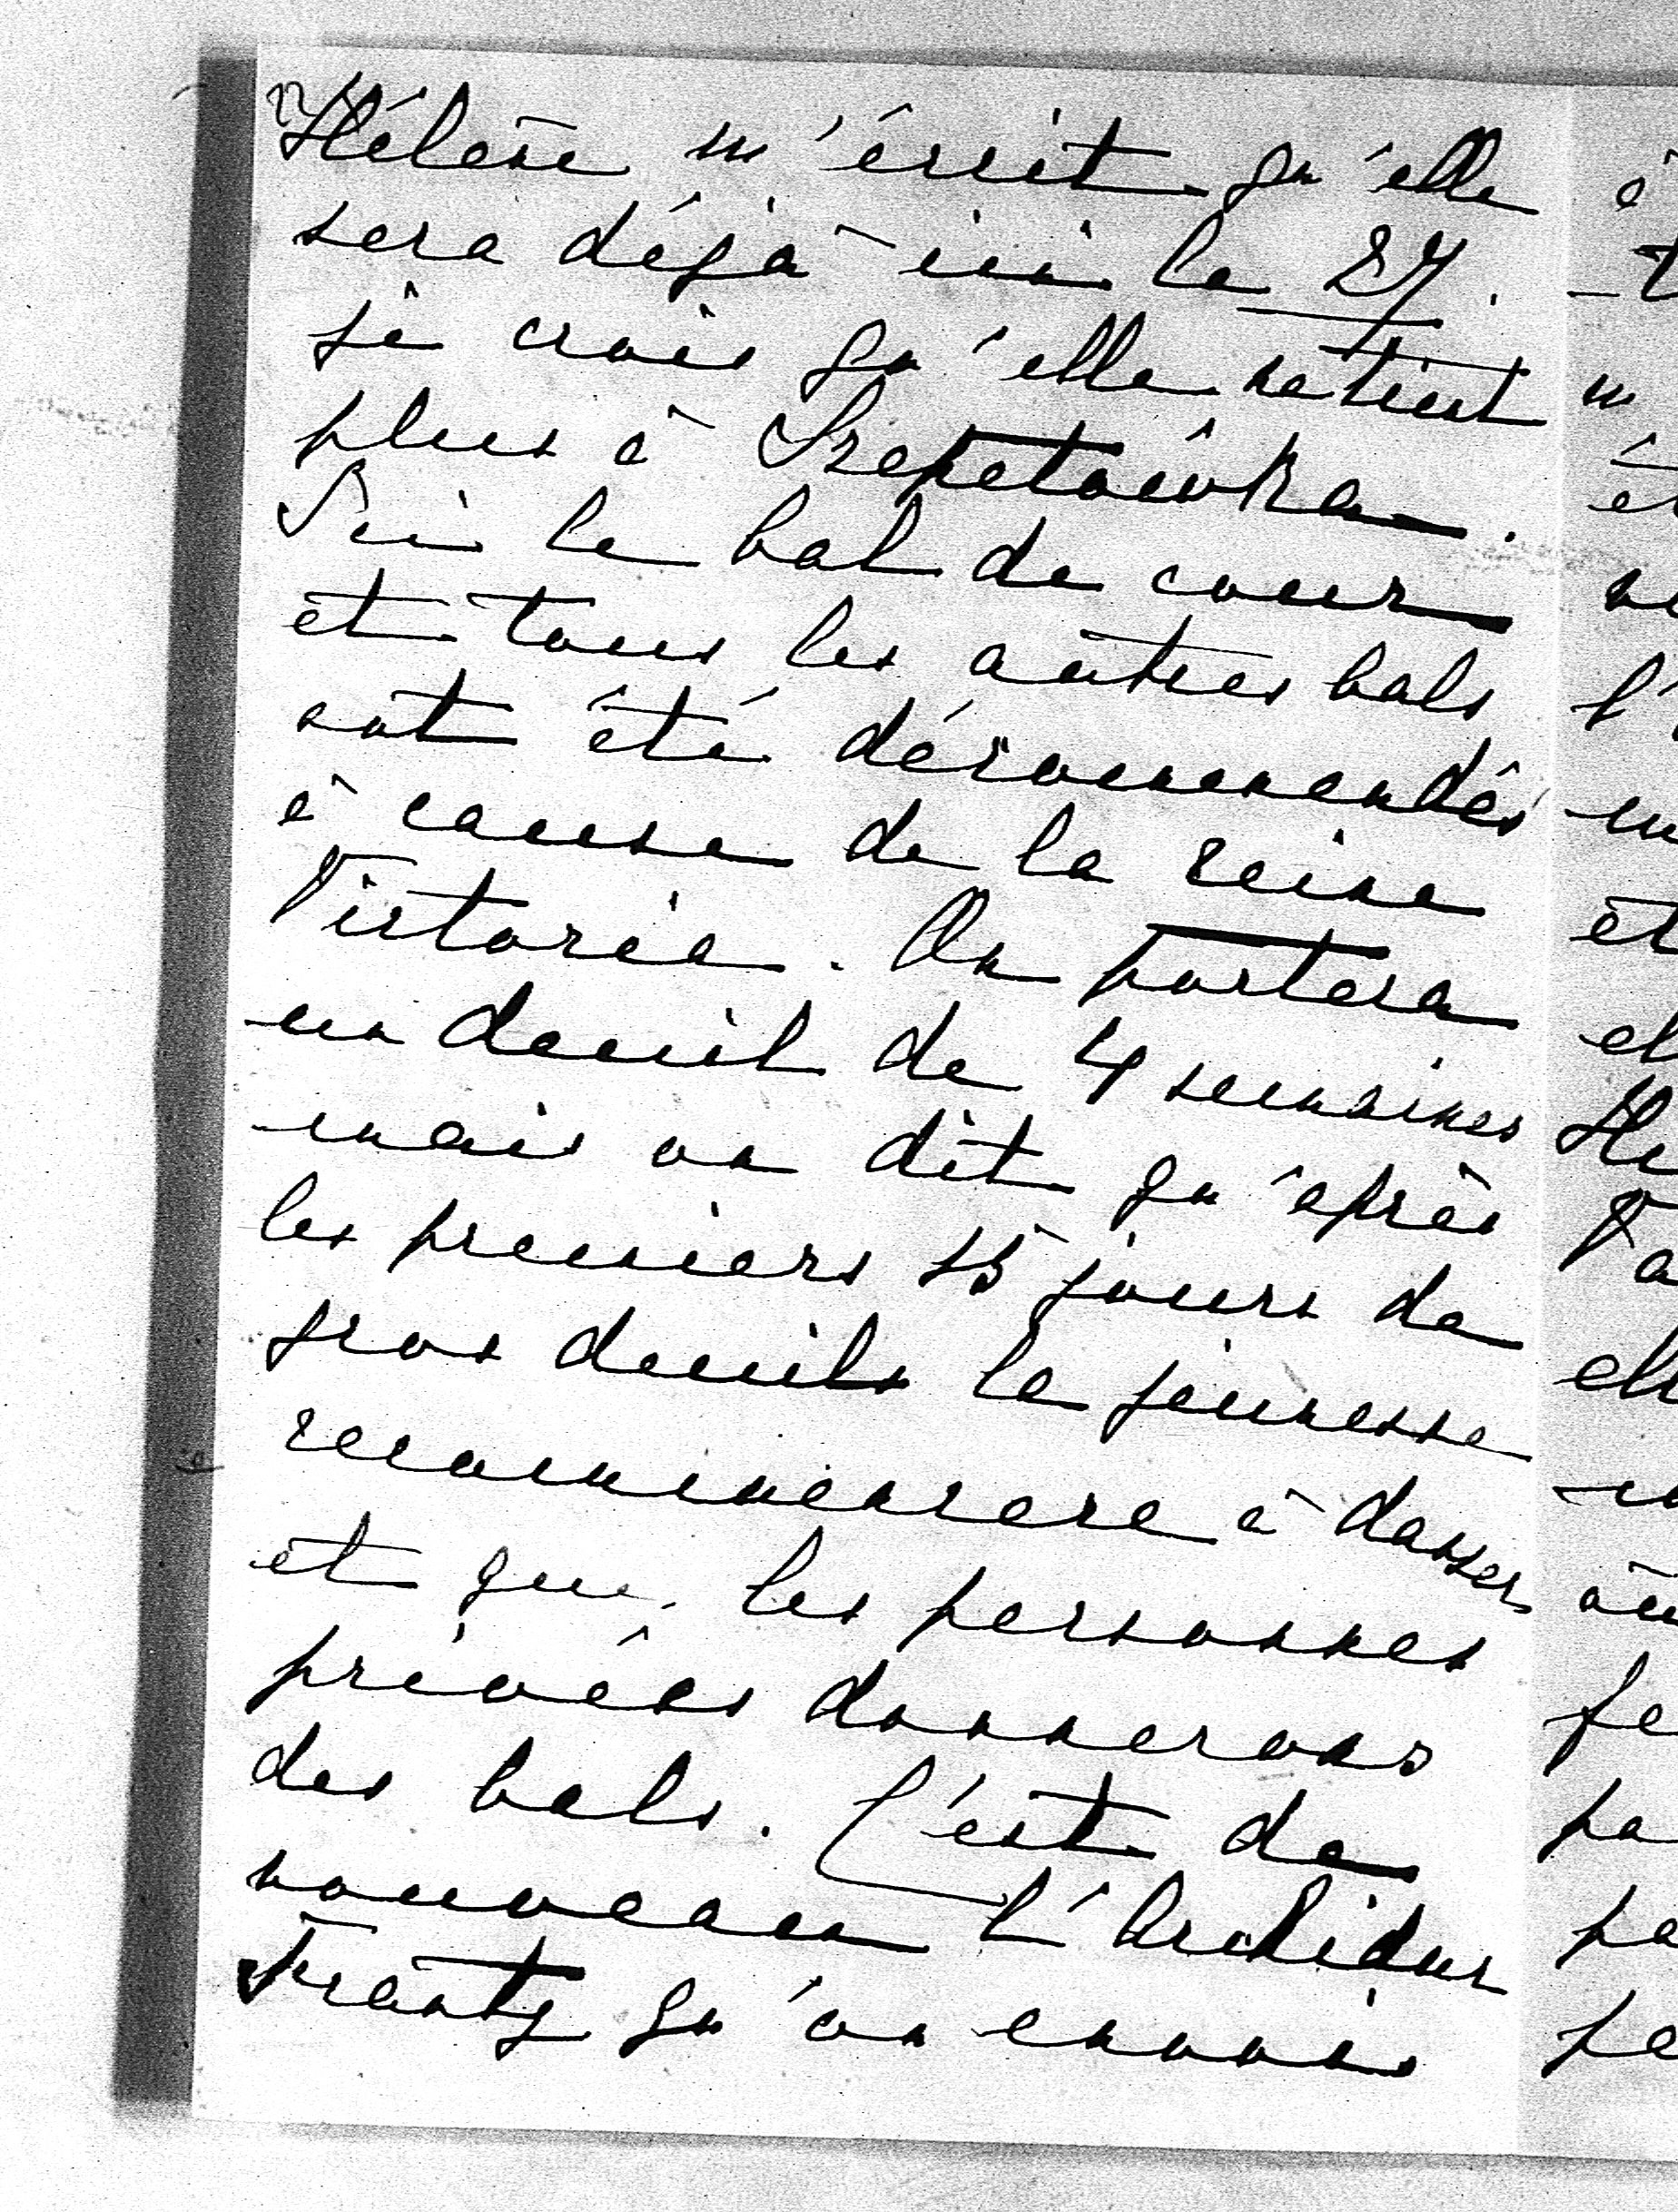 Hélène m'écrit qu'elle
sera déjà ici le 27.
je crois qu'elle ne tient
plus à Szepetówka.
Ici le bal de cour
et tous les autres bals
ont été décommandés
à cause de la reine
Victoria. On portera
un deuil de 4 semaines
mais on dit qu'après
les premiers 15 jours de
gros deuils la jeunesse
recommencera à danser
et que les personnes
privées donnerons
des bals. C'est de
nouveau l'Archiduc
Frantz qu'on envois